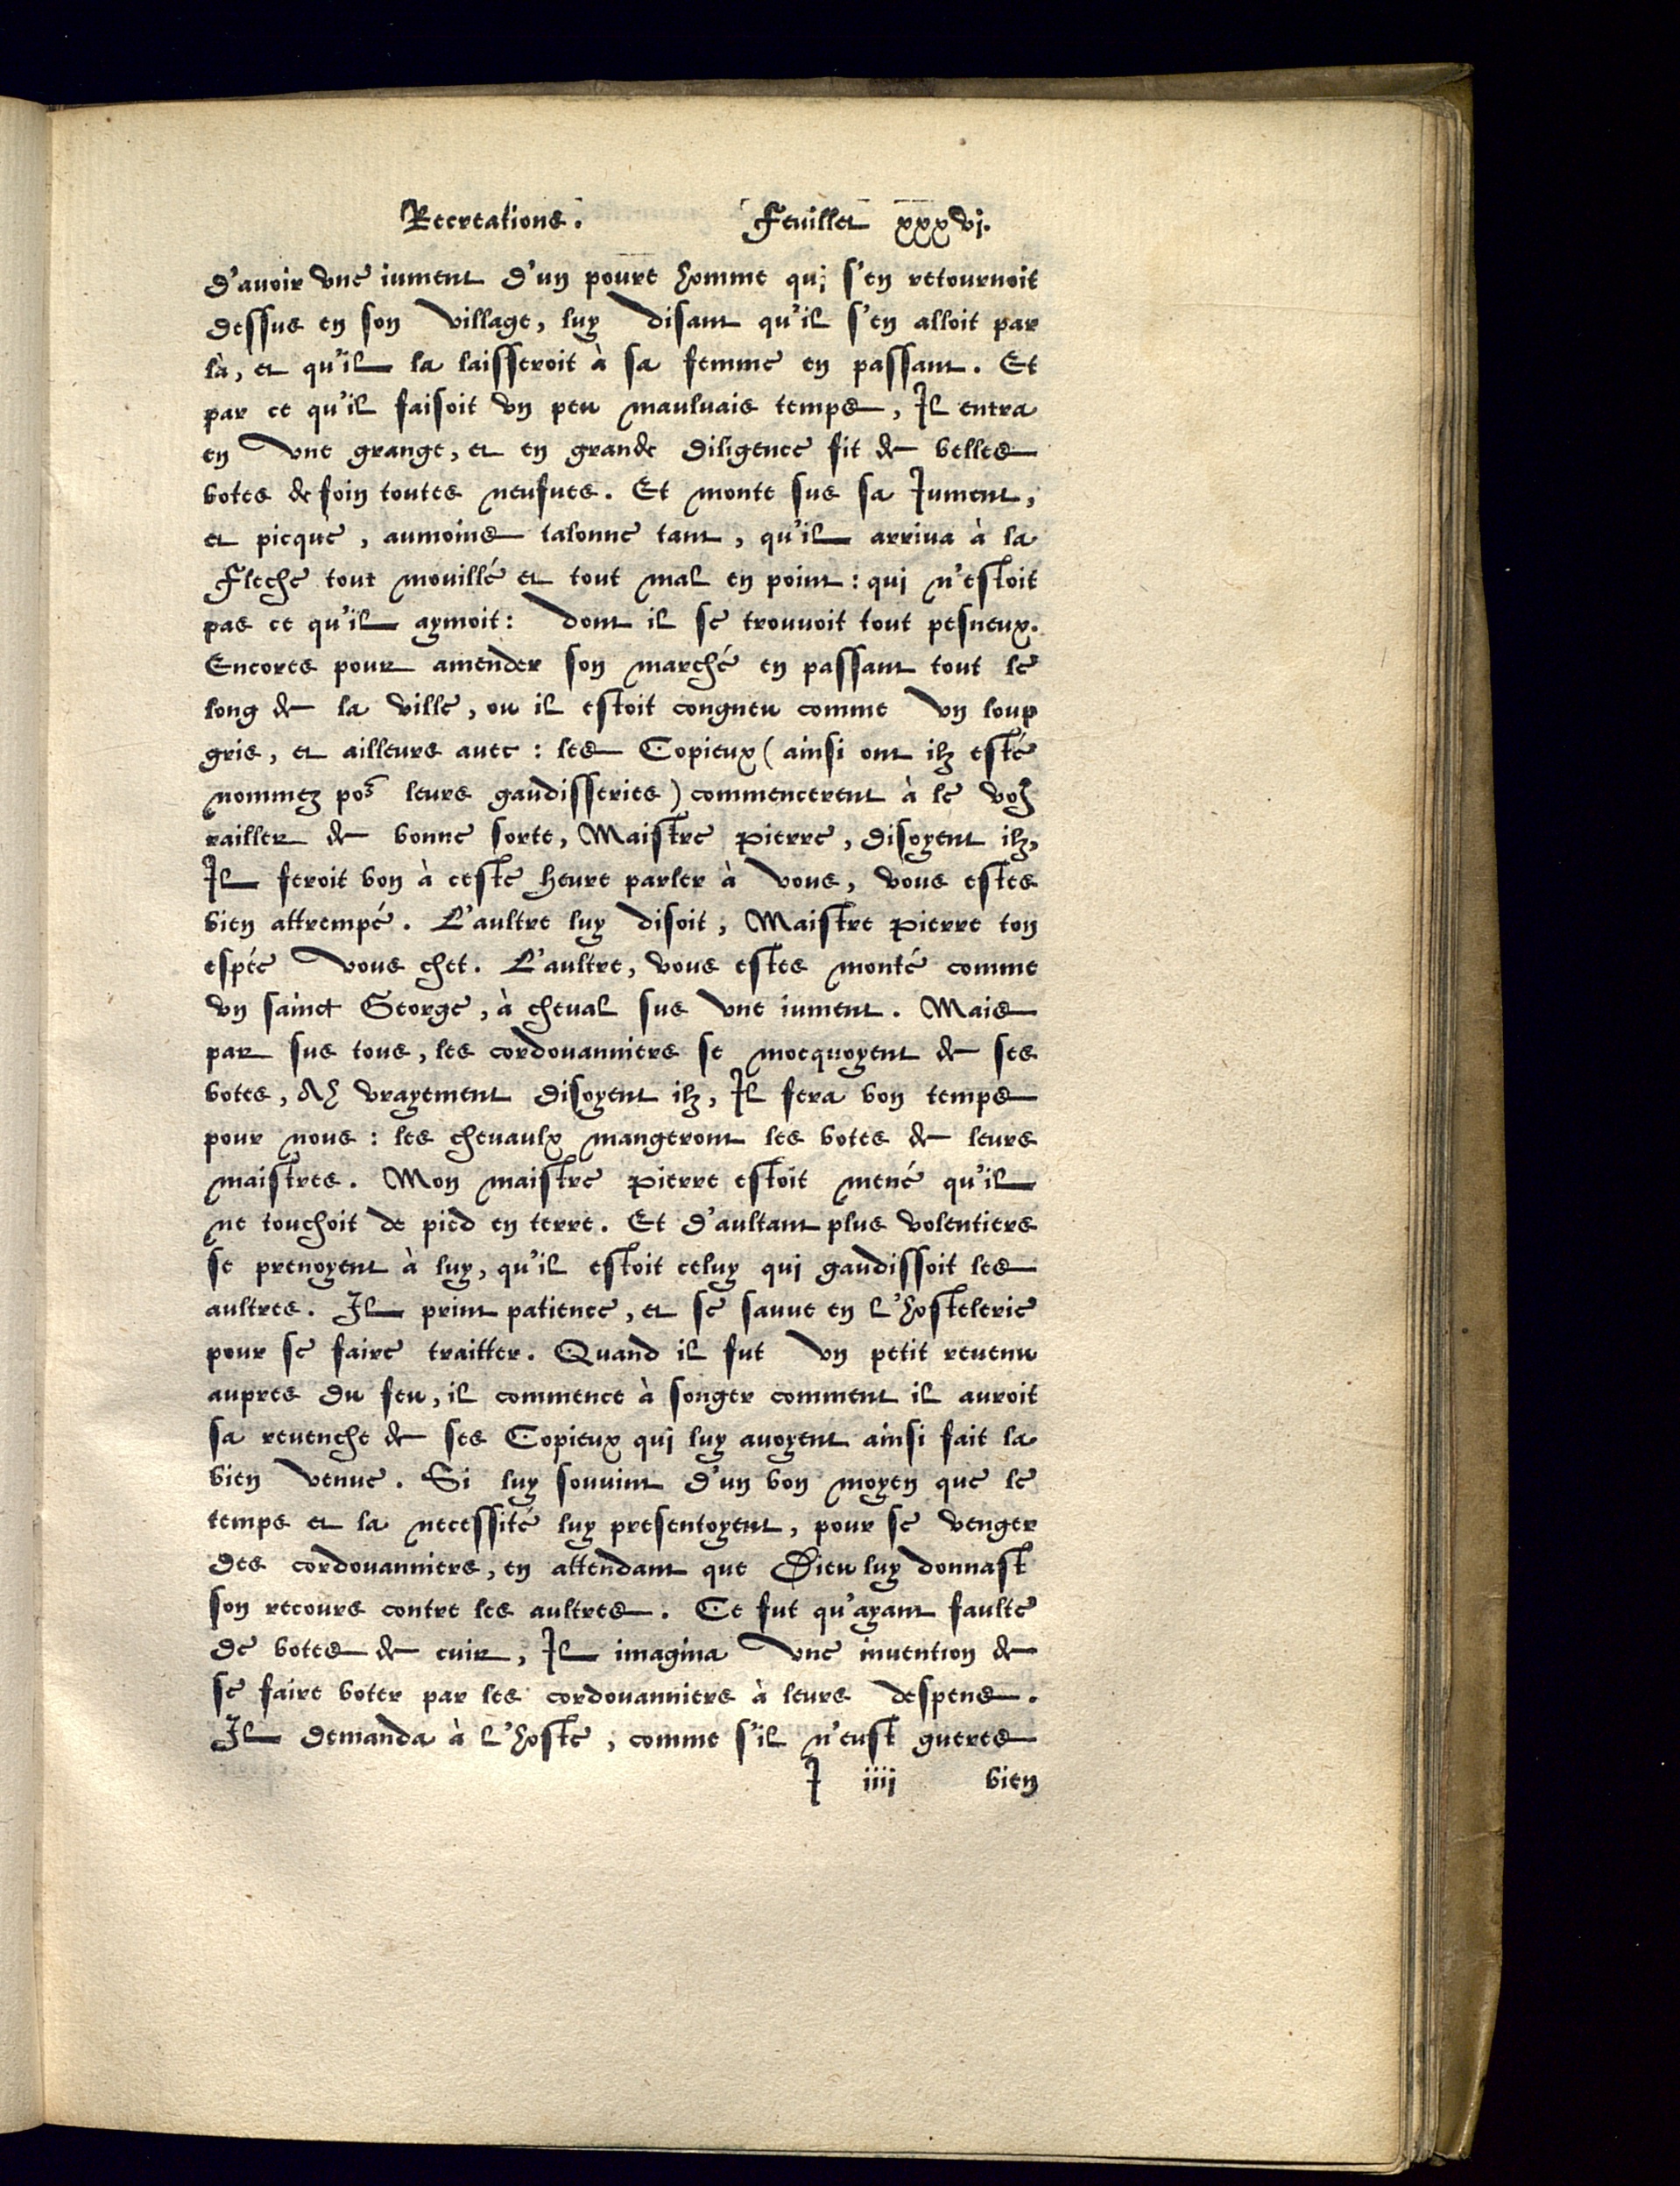 Recreations. Feuillet xxxvj.
d'auoir vne iument d'un poure homme qui s'en retournoit
dessus en son village, luy disant qu'il s'en alloit par
là, et qu'il la laisseroit à sa femme en passant. Et
par ce qu'il faisoit vn peu mauluais temps, Il entra
en vne grange, et en grande diligence fit de belles
botes de foin toutes neufues. Et monte sus sa Iument,
et picque, aumoins talonne tant, qu'il arriua à la
Fleche tout mouillé et tout mal en point: qui n'estoit
pas ce qu'il aymoit: dont il se trouuoit tout pesneux.
Encores pour amender son marché en passant tout le
long de la ville, ou il estoit congneu comme vn loup
gris, et ailleurs auec: les Copieux (ainsi ont ilz esté
nommez por leurs gaudisseries) commencerent à le vo9
railler de bonne sorte, Maistre Pierre, disoyent ilz,
Il feroit bon à ceste heure parler à vous, vous estes
bien attrempé. L'aultre luy disoit, Maistre Pierre ton
espée vous chet. L'aultre, vous estes monté comme
vn sainct George, à cheual sus vne iument. Mais
par sus tous, les cordouanniers se mocquoyent de ses
botes, Ah vrayement disoyent ilz, Il fera bon temps
pour nous: les cheuaulx mangeront les botes de leurs
maistres. Mon maistre Pierre estoit mené qu'il
ne touchoit de pied en terre. Et d'aultant plus volentiers
se prenoyent à luy, qu'il estoit celuy qui gaudissoit les
aultres. Il print patience, et se sauue en l'hostelerie
pour se faire traitter. Quand il fut vn petit reuenu
aupres du feu, il commence à songer comment il auroit
sa reuenche de ses Copieux qui luy auoyent ainsi fait la
bien venue. Si luy souuint d'un bon moyen que le
temps et la necessité luy presentoyent, pour se venger
des cordouanniers, en attendant que Dieu luy donnast
son recours contre les aultres. Ce fut qu'ayant faulte
de botes de cuir, Il imagina vne inuention de
se faire boter par les cordouanniers à leurs despens.
Il demanda à l'hoste, comme s'il n'eust gueres
I iiij bien